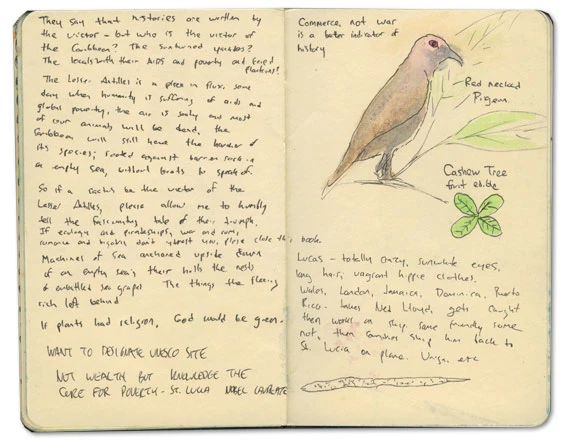 They say that histories are written by
the victor - but who is the victor of
the Caribbean? The sunburned
The locals with their AIDS and poverty and fried
plantains?
The Lesser Antilles is a place in flux. some
day when humanity is suffering of aids and
global poverty, the air is and most
of our animals will be dead, the
Caribbean will still have the hardier of
its species; rooted against barren rock in
an empty sea, without boats to speak of.
So if a cactus be the victor of the
Lesser Antilles, please allow me to humbly
tell the fascinating tale of their triumph.
If ecology and pirateships, war and rum,
romance and bigotry don't interest you, please close this book.
Machines of sea anchored upside down
of an empty sea's their hulls the nests
of embattled sea grapes The things the fleeing
rich left behind
If plants had religion, God would be green.
WANT TO DESIGNATE UNESCO SITE
NOT WEALTH BUT KNOWLEDGE THE
CURE FOR POVERTY - ST. LUCIA NOBEL LAUREATE
Commerce, not war
is a better indicator of
history
Red necked
Pigeon
Cashew Tree
fruit edible
Lucas - totally crazy, sunwhite eyes,
long hair, vagrant hippie clothes.
Wales, London, Jamaica, Dominica, Puerto
Rico. takes Ned Lloyd, gets caught
then works on ship some friendly some
not, then ship him back to
St. Lucia on plane. etc